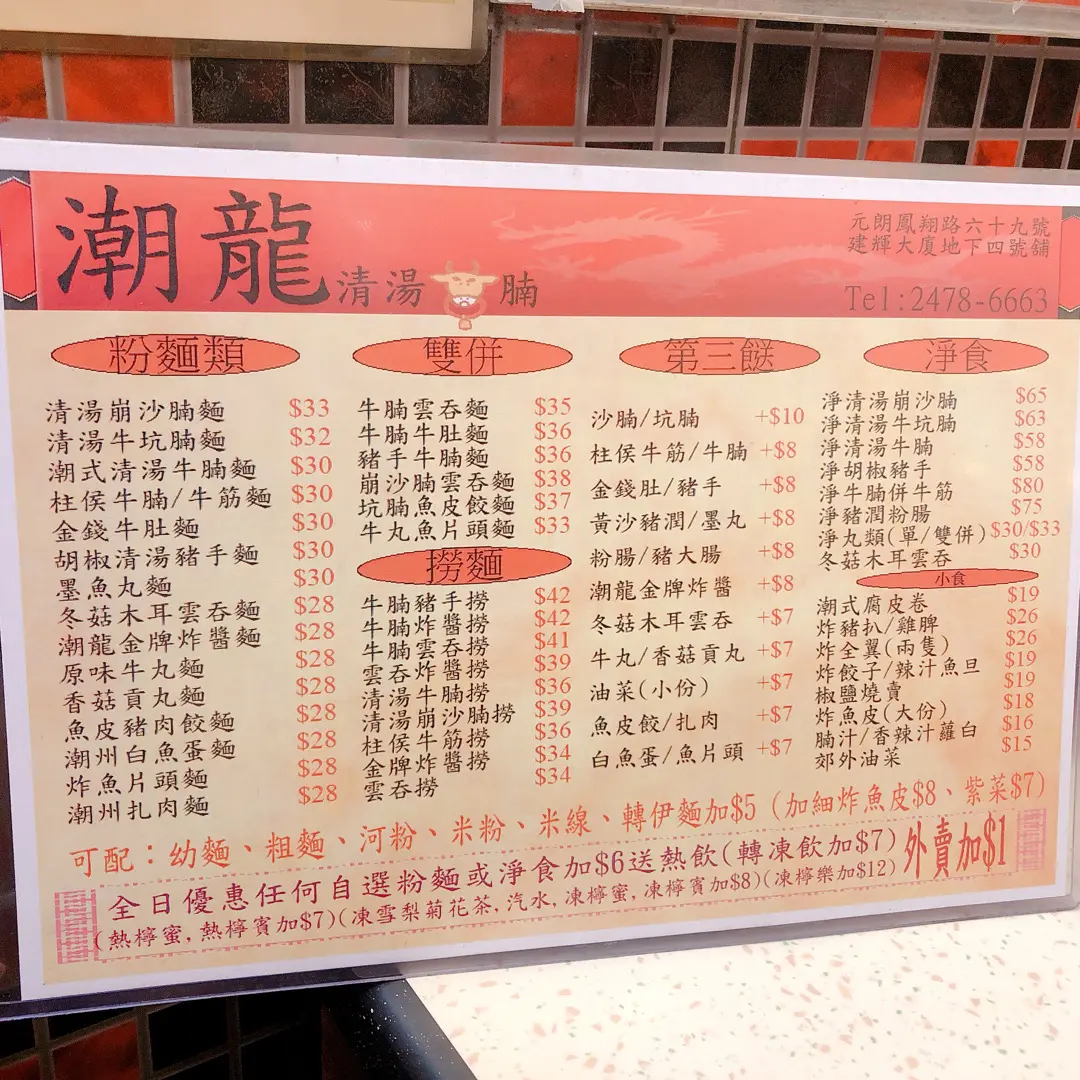 潮龍清湯腩
元朗鳳翔路六十九號
建輝大廈地下四號舖
Tel:2478-6663
粉麵類
清湯崩沙腩麵 $33
清湯牛坑腩麵 $32
潮式清湯牛腩麵 $30
柱侯牛腩/牛筋麵 $30
金錢牛肚麵 $30
胡椒清湯豬手麵 $30
墨魚丸麵 $30
冬菇木耳雲吞麵 $28
潮龍金牌炸醬麵 $28
原味牛丸麵 $28
香菇貢丸麵 $28
魚皮豬肉餃麵 $28
潮州白魚蛋麵 $28
炸魚片頭麵 $28
潮州扎肉麵 $28
雙併
牛腩雲吞麵 $35
牛腩牛肚麵 $36
豬手牛腩麵 $36
崩沙腩雲吞麵 $38
坑腩魚皮餃麵 $37
牛丸魚片頭麵 $33
撈麵
牛腩豬手撈 $42
牛腩炸醬撈 $42
牛腩雲吞撈 $41
雲吞炸醬撈 $39
清湯牛腩撈 $36
清湯崩沙腩撈 $39
柱侯牛筋撈 $36
金牌炸醬撈 $34
雲吞撈 $34
第三餸
沙腩/坑腩 +$10
柱侯牛筋/牛腩 +$8
金錢肚/豬手 +$8
黃沙豬潤/墨丸 +$8
粉腸/豬大腸 +$8
潮龍金牌炸醬 +$8
冬菇木耳雲吞 +$7
牛丸/香菇貢丸 +$7
油菜(小份) +$7
魚皮餃/扎肉 +$7
白魚蛋/魚片頭 +$7
淨食
淨清湯崩沙腩 $65
淨清湯牛坑腩 $63
淨清湯牛腩 $58
淨胡椒豬手 $58
淨牛腩併牛筋 $80
淨豬潤粉腸 $75
淨丸類(單/雙併) $30/$33
冬菇木耳雲吞 $30
小食
潮式腐皮卷 $19
炸豬扒/雞脾 $26
炸全翼(兩隻) $26
炸餃子/辣汁魚旦 $19
椒鹽燒賣 $19
炸魚皮(大份) $18
腩汁/香辣汁蘿白 $16
郊外油菜 $15
可配：幼麵、粗麵、河粉、米粉、米線、轉伊麵加$5 (加細炸魚皮$8、紫菜$7)
全日優惠任何自選粉麵或淨食加$6送熱飲(轉凍飲加$7) 外賣加$1
(熱檸蜜,熱檸賓加$7)(凍雪梨菊花茶,汽水,凍檸蜜,凍檸賓加$8)(凍檸樂加$12)